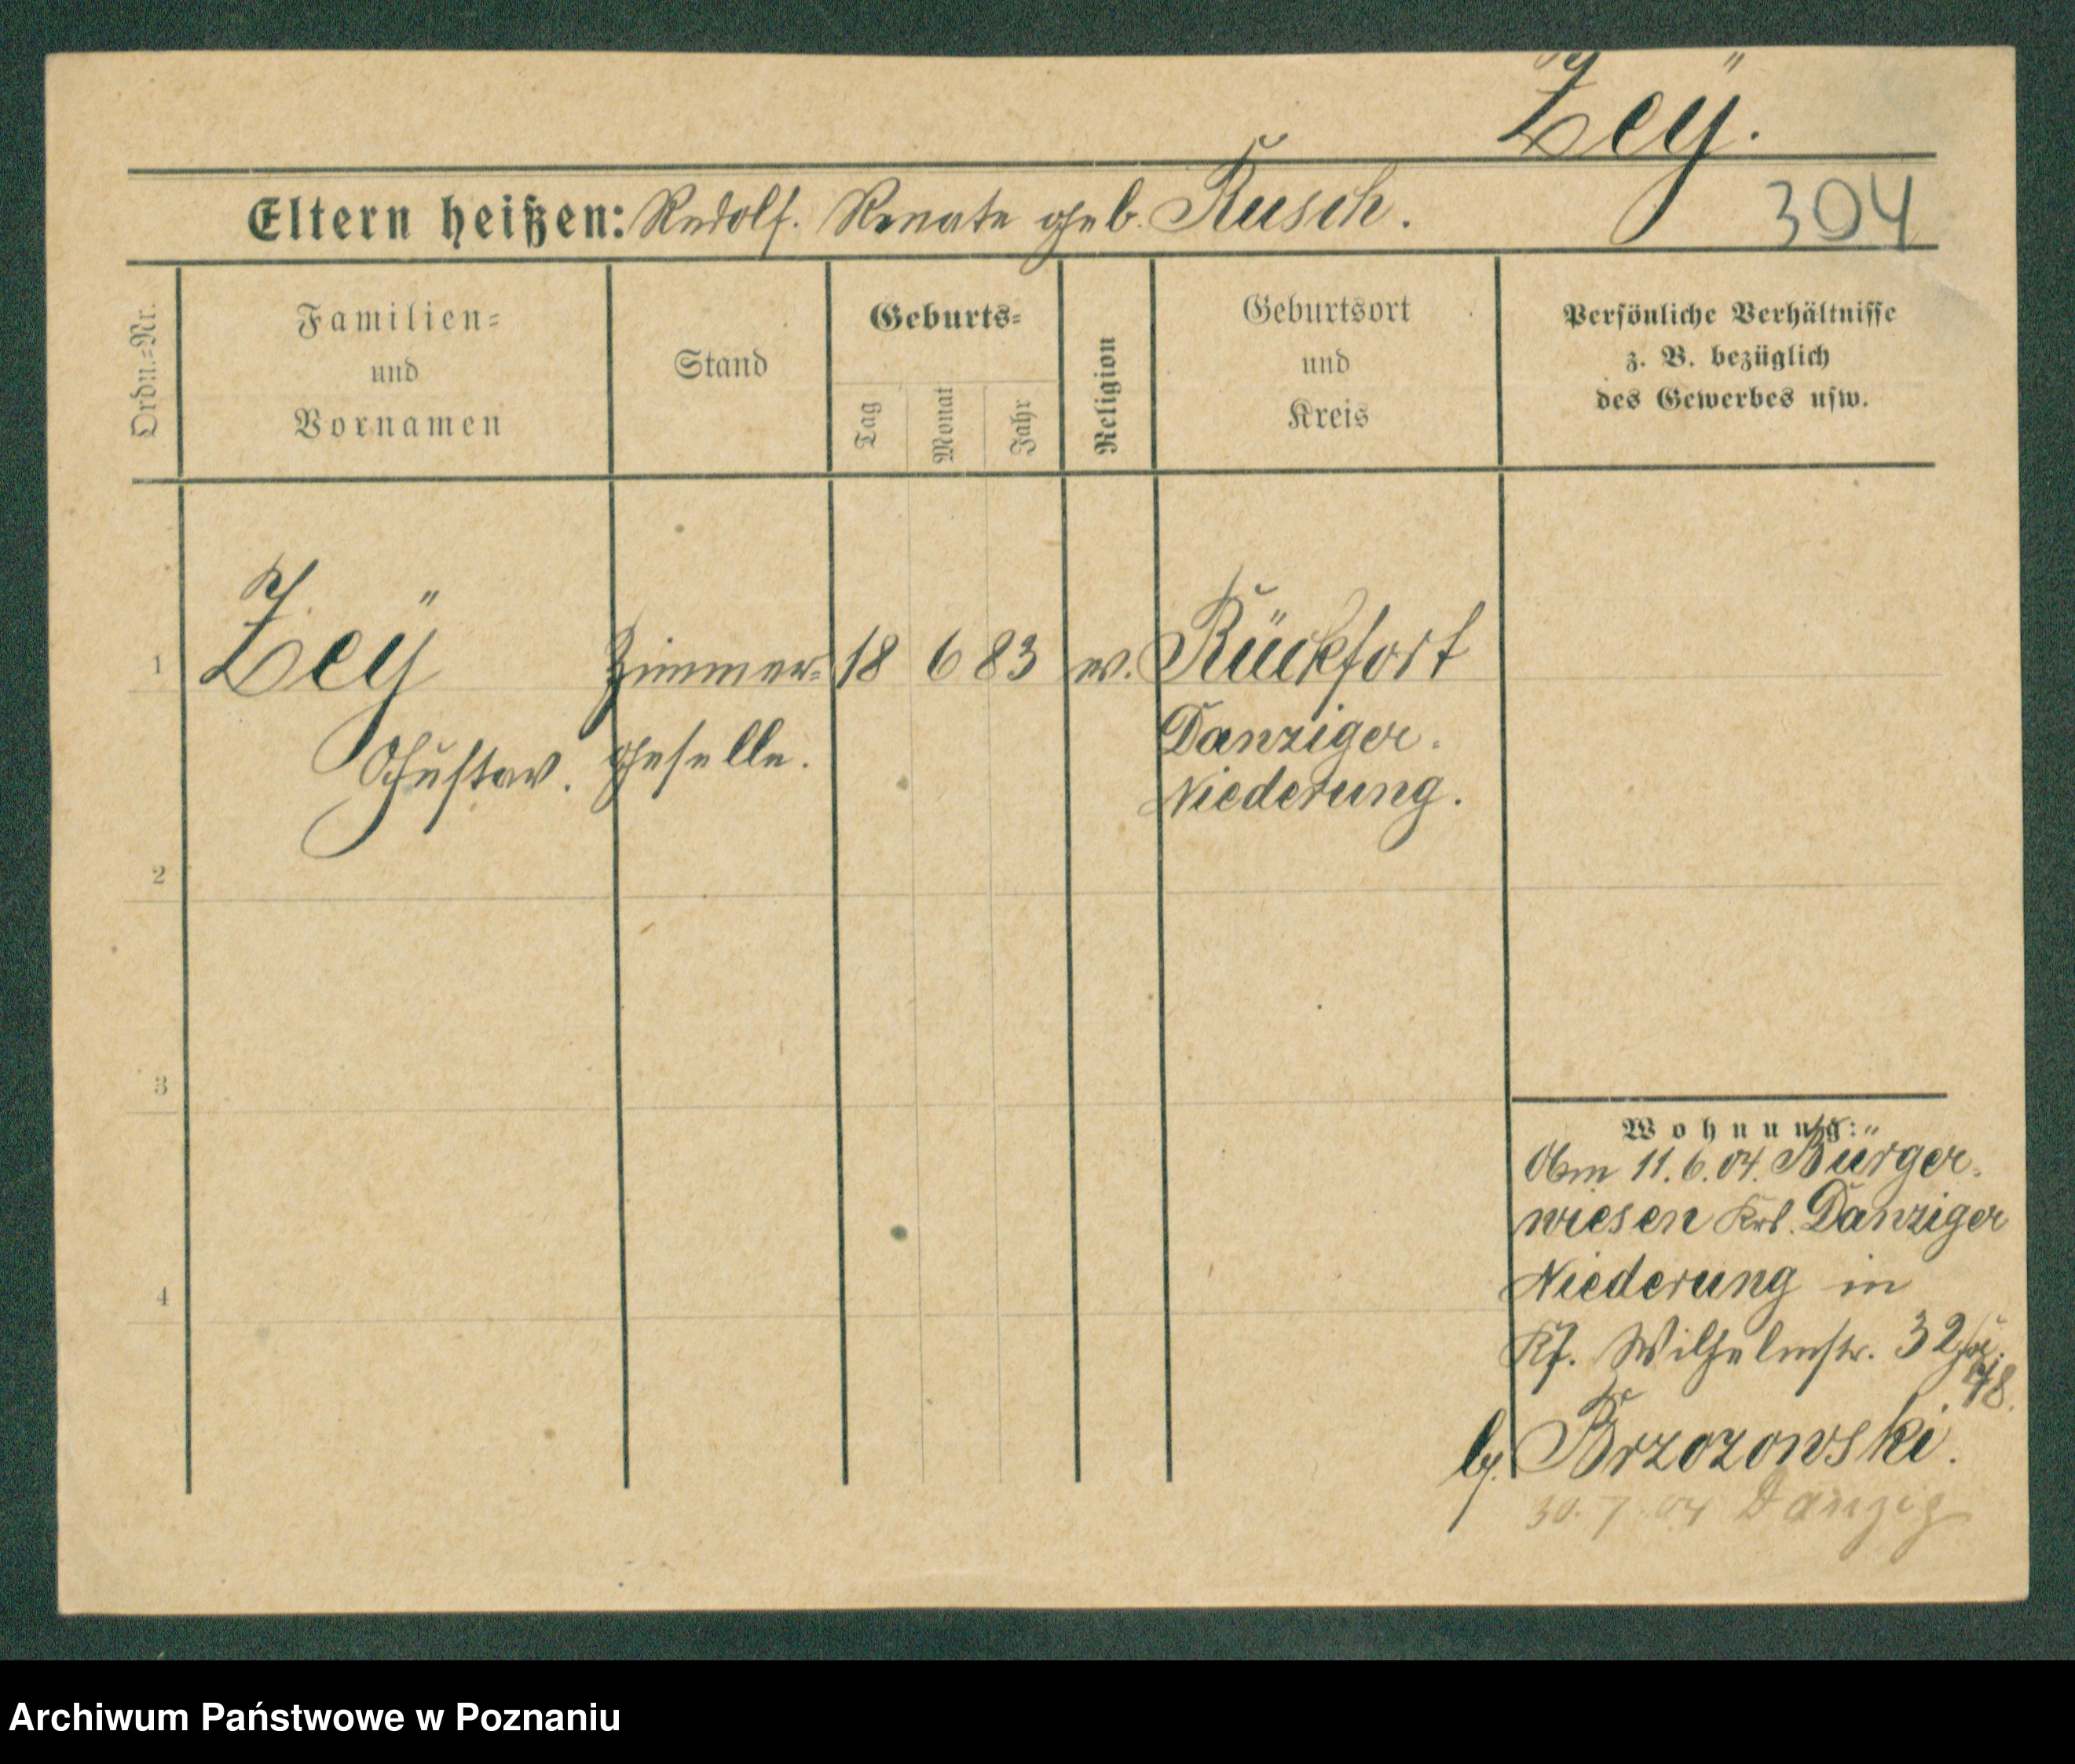 Zeÿ.
Eltern heißen: Rudolf. Renate geb. Rusch.
304
Ordn.=Nr.
Familien=
und
Vornamen
Stand
Geburts=
Tag
Monat
Jahr
Religion
Geburtsort
und
Kreis
Persönliche Verhältnisse
z. B. bezüglich
des Gewerbes usw.
1 Zeÿ Zimmer= 18 6 83 ev. Rückfort
Gustav. geselle. Danziger.
Niederung.
2
3
4
Wohnung:
11.6.04. Bürger.
wiesen Krs. Danziger
Niederung in
Wilhelmstr. 32
78.
b/. Brzozowski.
30.7.04 Danzig
Archiwum Państwowe w Poznaniu